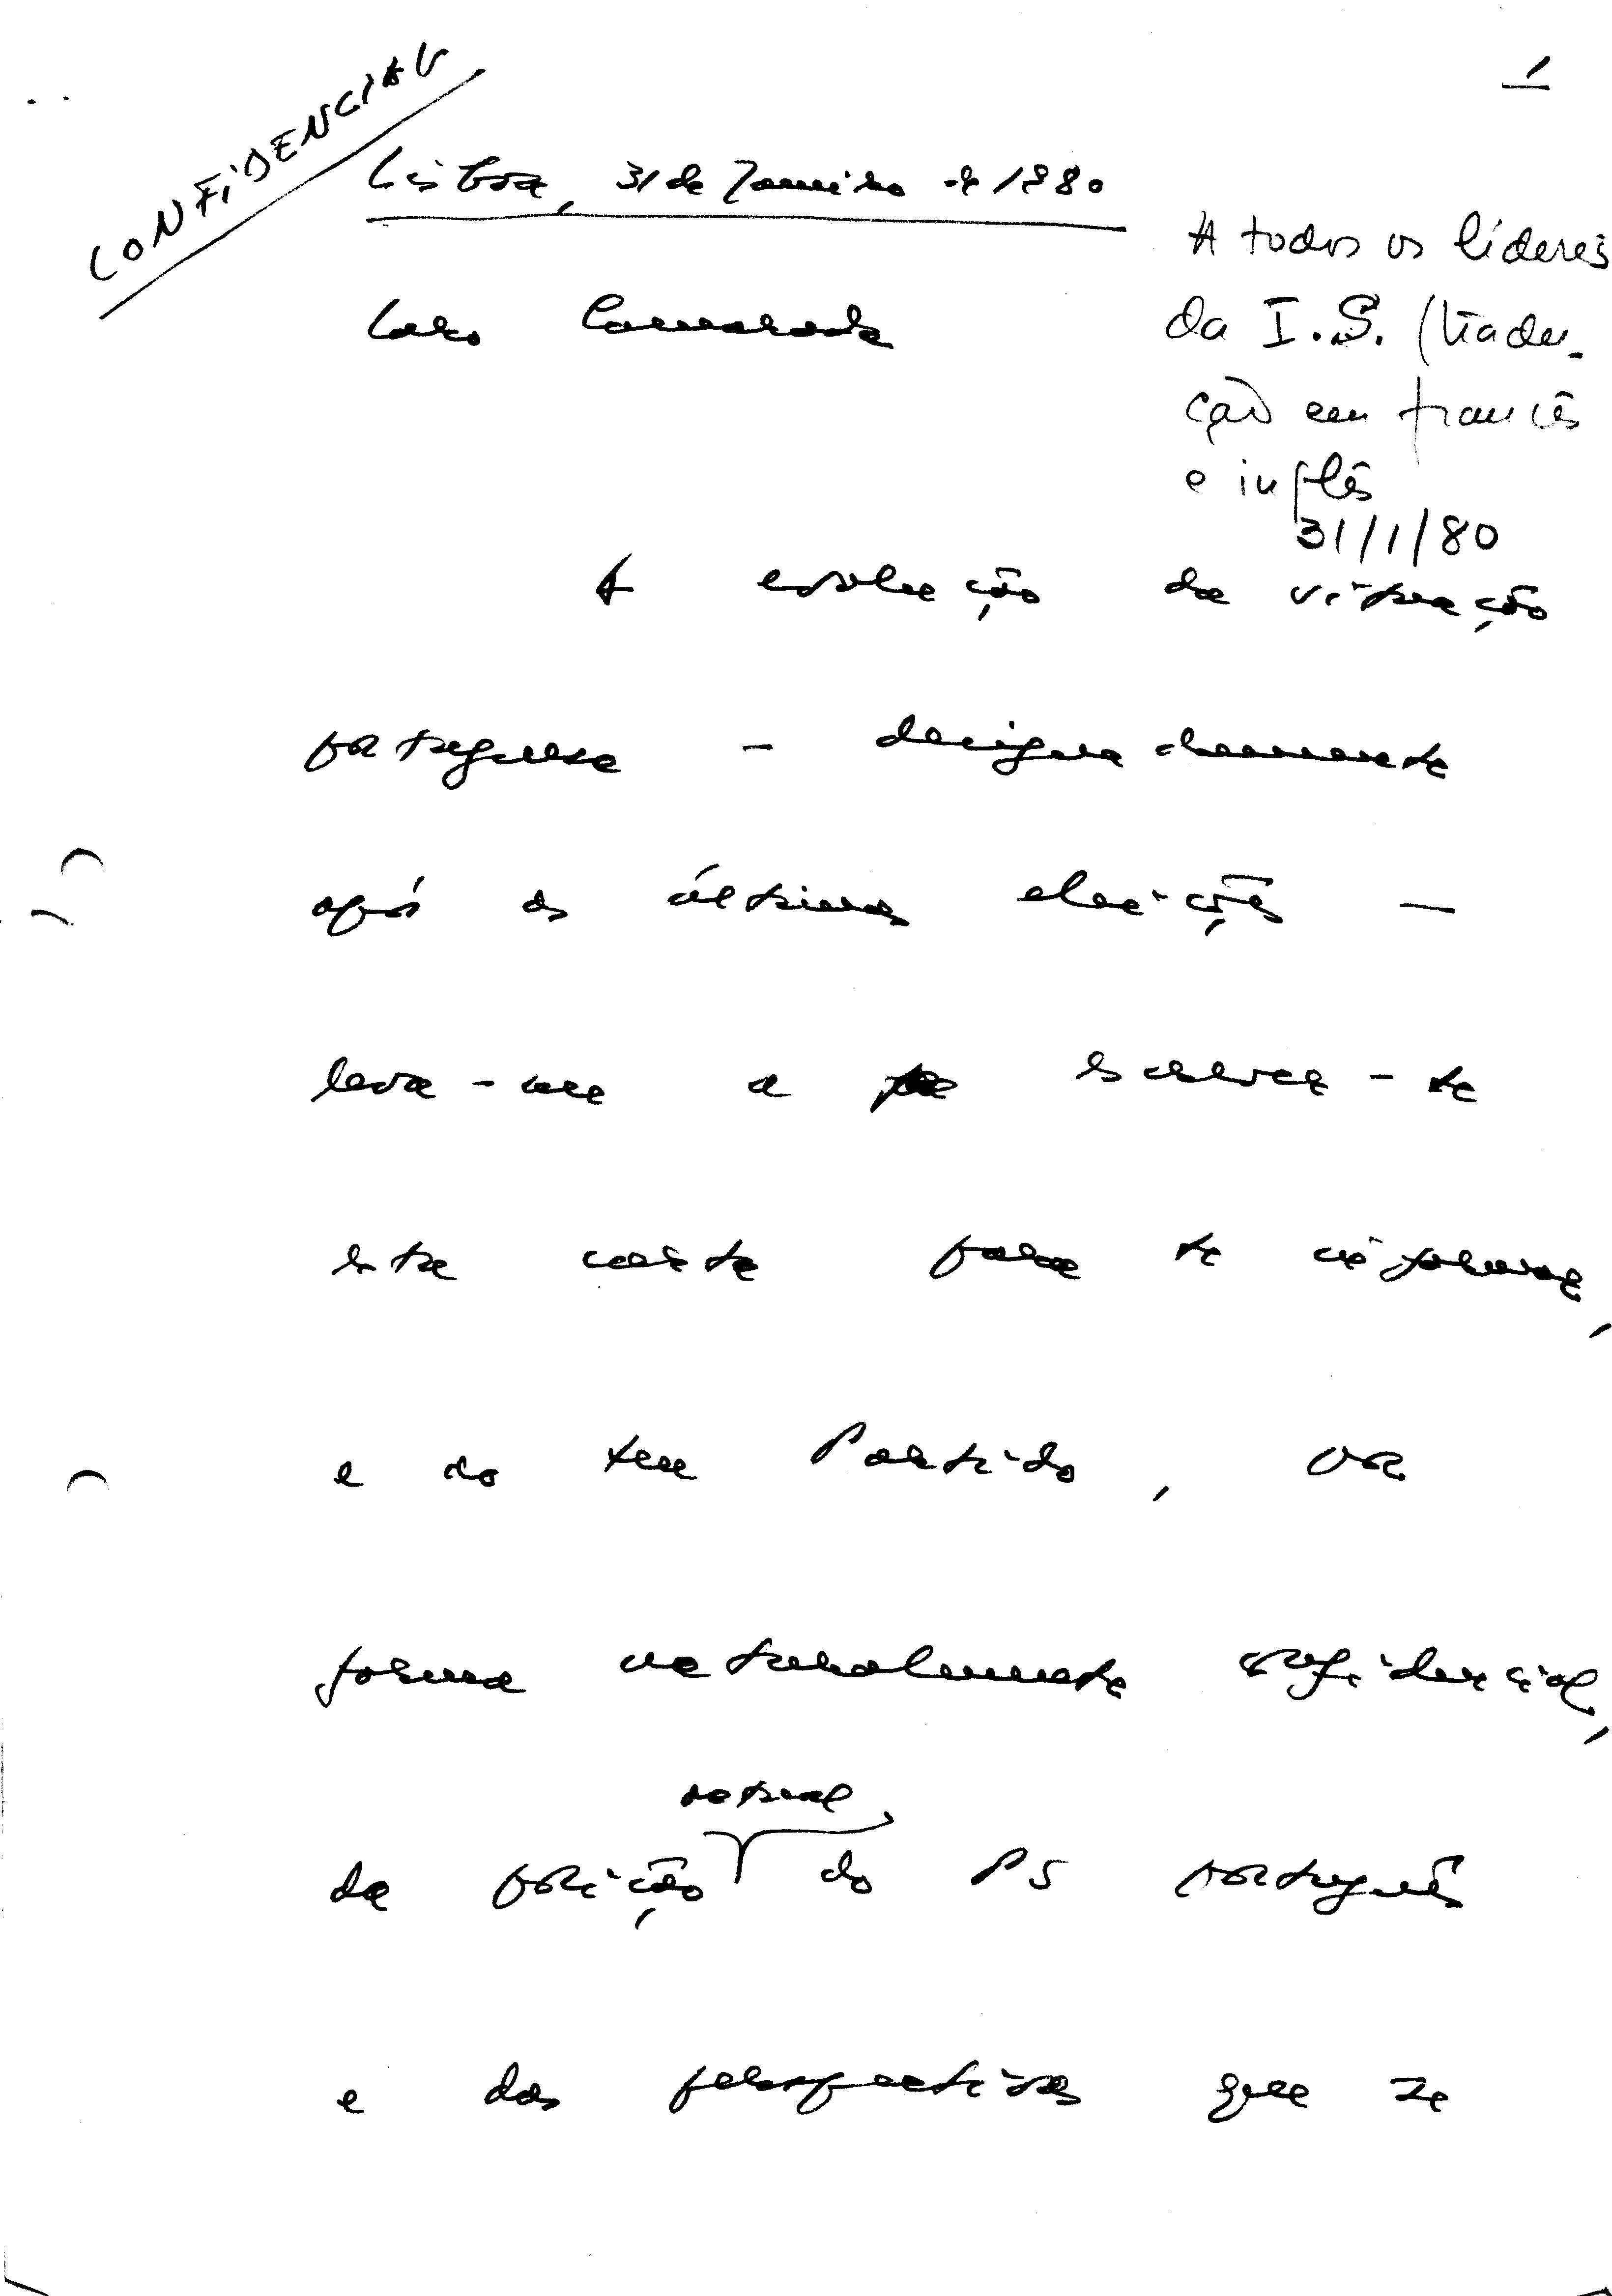 CONFIDENCIAL
1
Lisboa, 31 de Janeiro de 1980
A todos os líderes
da I.S. (tradu-
ção em francês
e inglês
31/1/80
Caro Camarada
A evolução da situação
portuguesa - designadamente
após as últimas eleições -
leva-me a escrever-te
esta carta para te informar,
e ao teu Partido, por
forma naturalmente confidencial,
actual
da posição do PS português
e das perspectivas que se